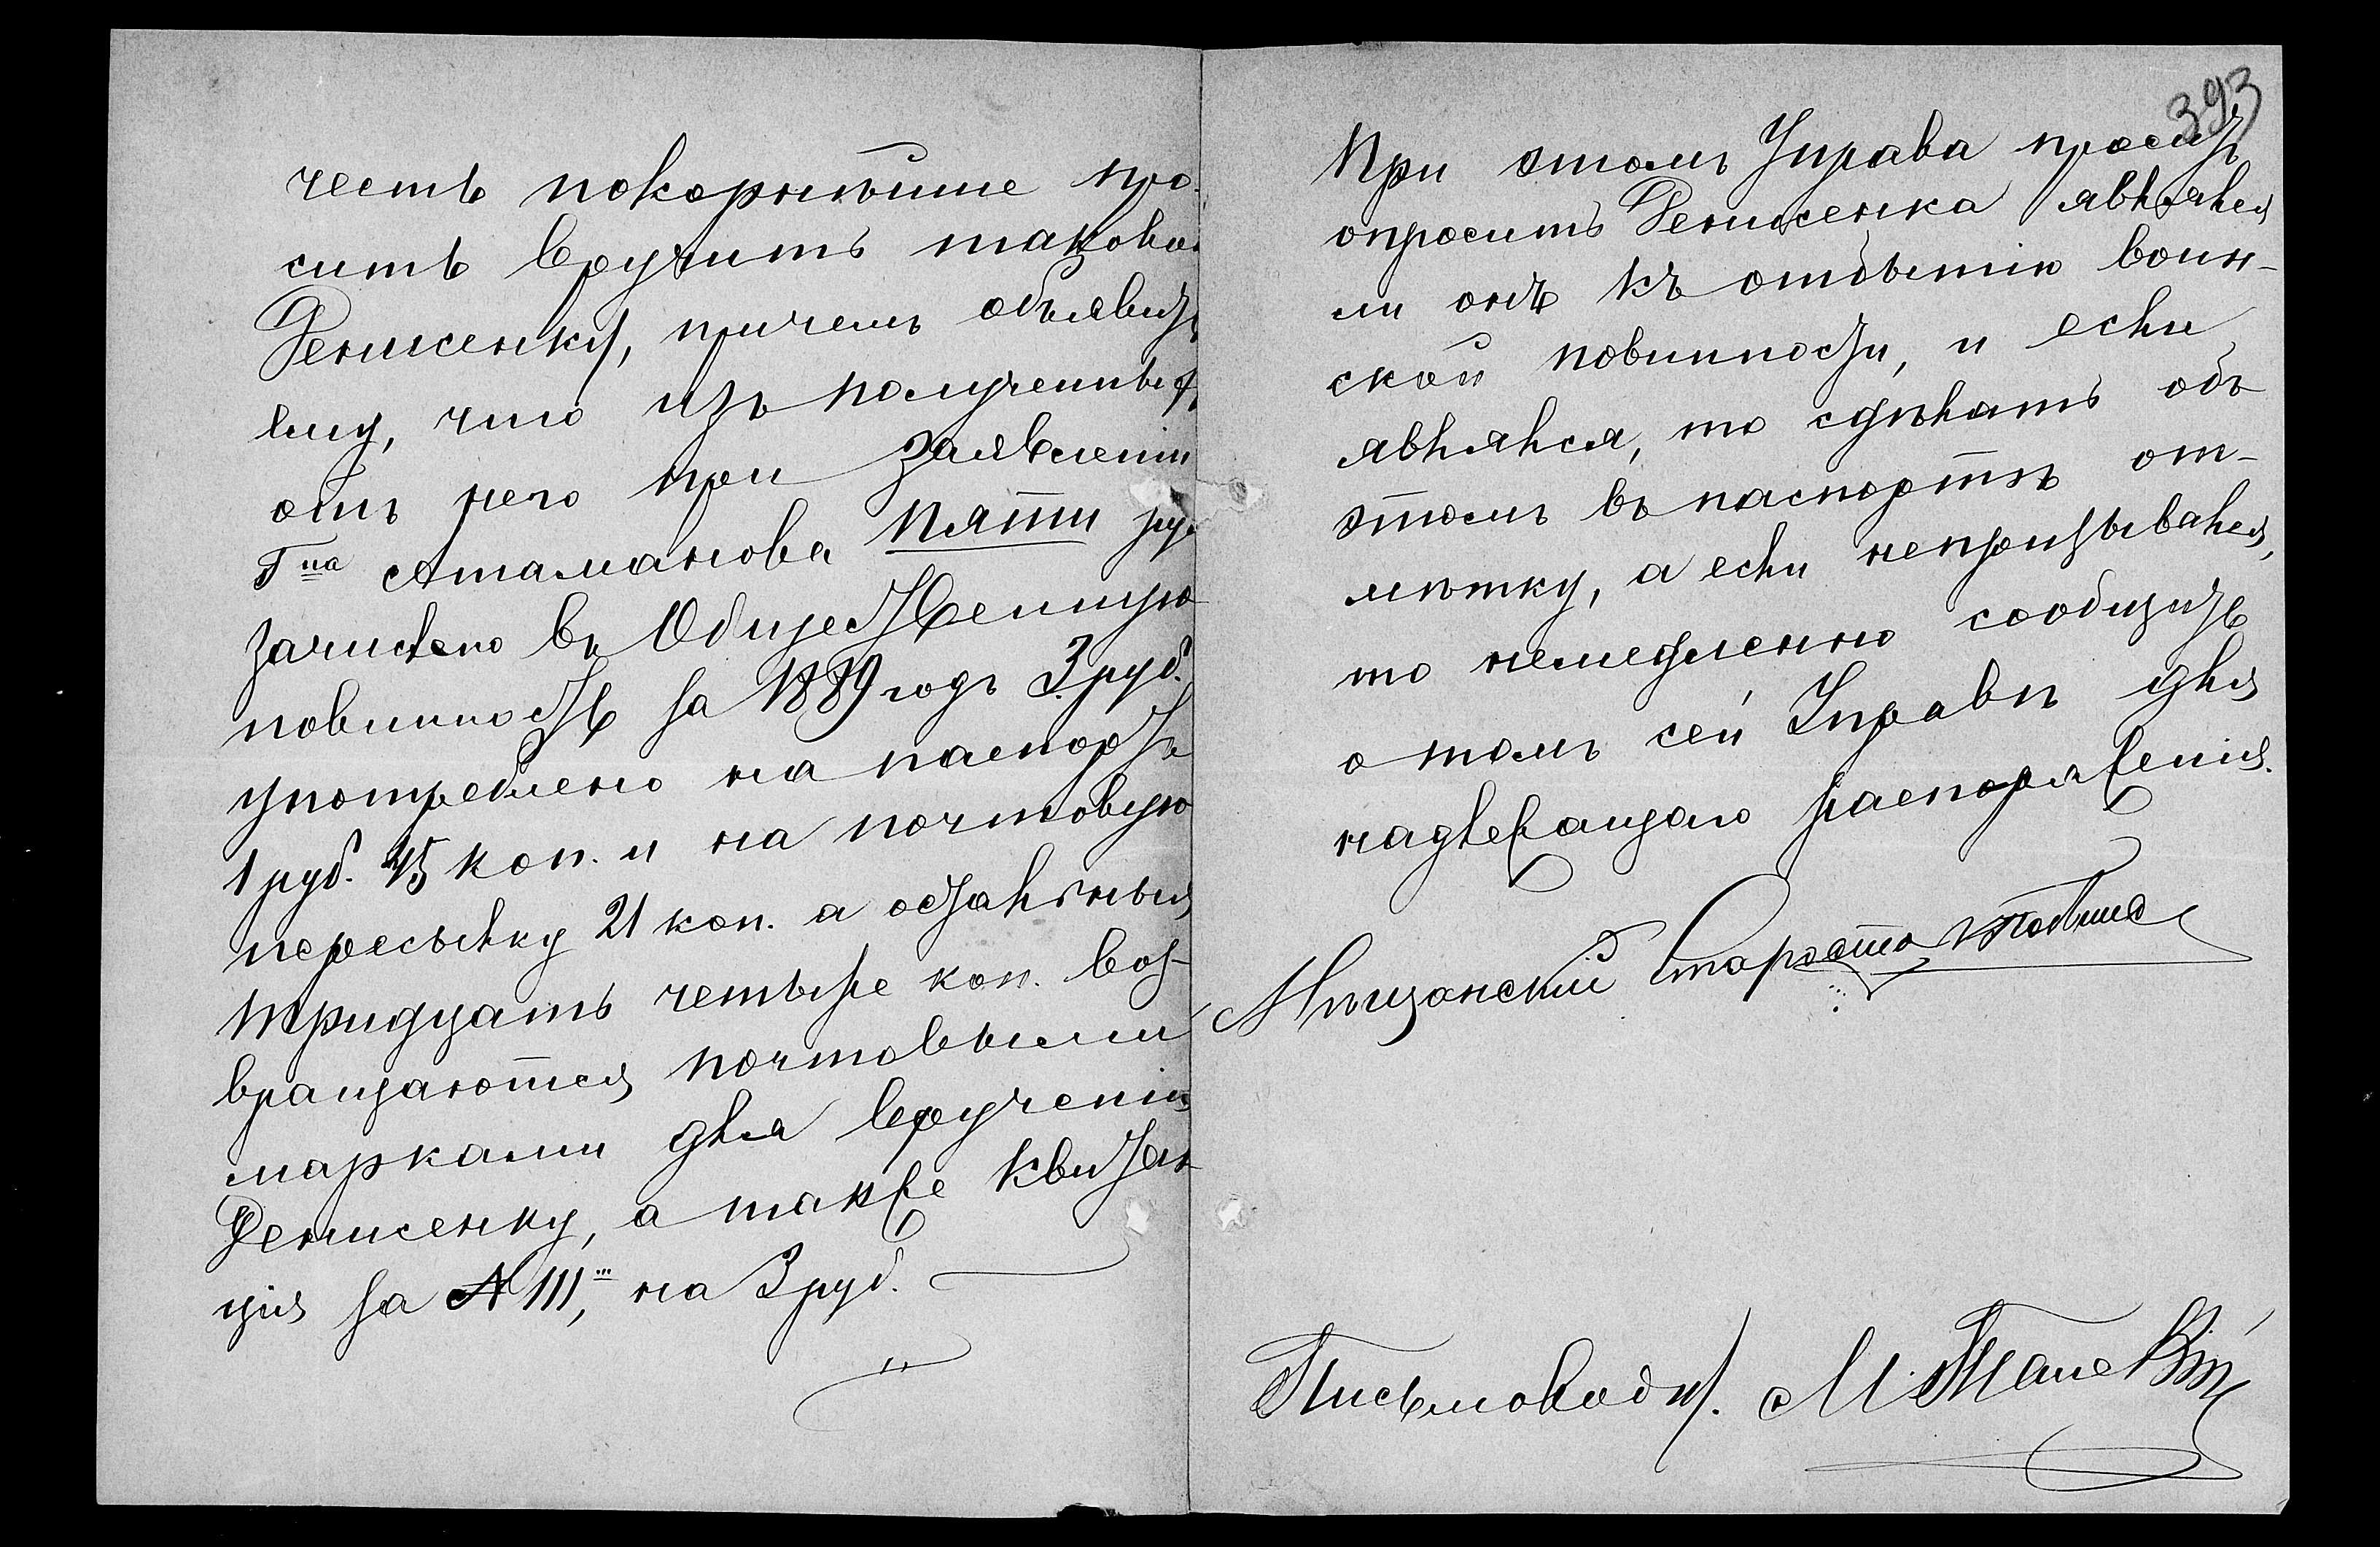 честь покорнѣйше про-
сить вручить таковой
Денисенку, причемъ объявить
ему, что изъ полученныхъ
отъ него при заявленіи
Г<sup>на</sup> Атаманова пяти руб
зачислено въ Общественную
повинность за 1889 годъ 3 руб.
употреблено на паспортъ
1 руб. 45 коп. и на почтовую
пересылку 21 коп. а остальныя
тридцать четыре коп. воз-
вращаются почтовыми
марками для врученія
Денисенку, а также квитан-
ція за № 111, на 3 руб.
393
При этомъ Управа проситъ
опросить Денисенка являлся
ли онъ къ отбытію воин-
ской повинности, и если
являлся, то сдѣлать объ
этомъ въ паспортѣ от-
мѣтку, а если непризывался,
то немедленно сообщить
о томъ сей Управѣ для
надлежащаго распоряженія.
Мѣщанскій Староста
Письмоводит. М.